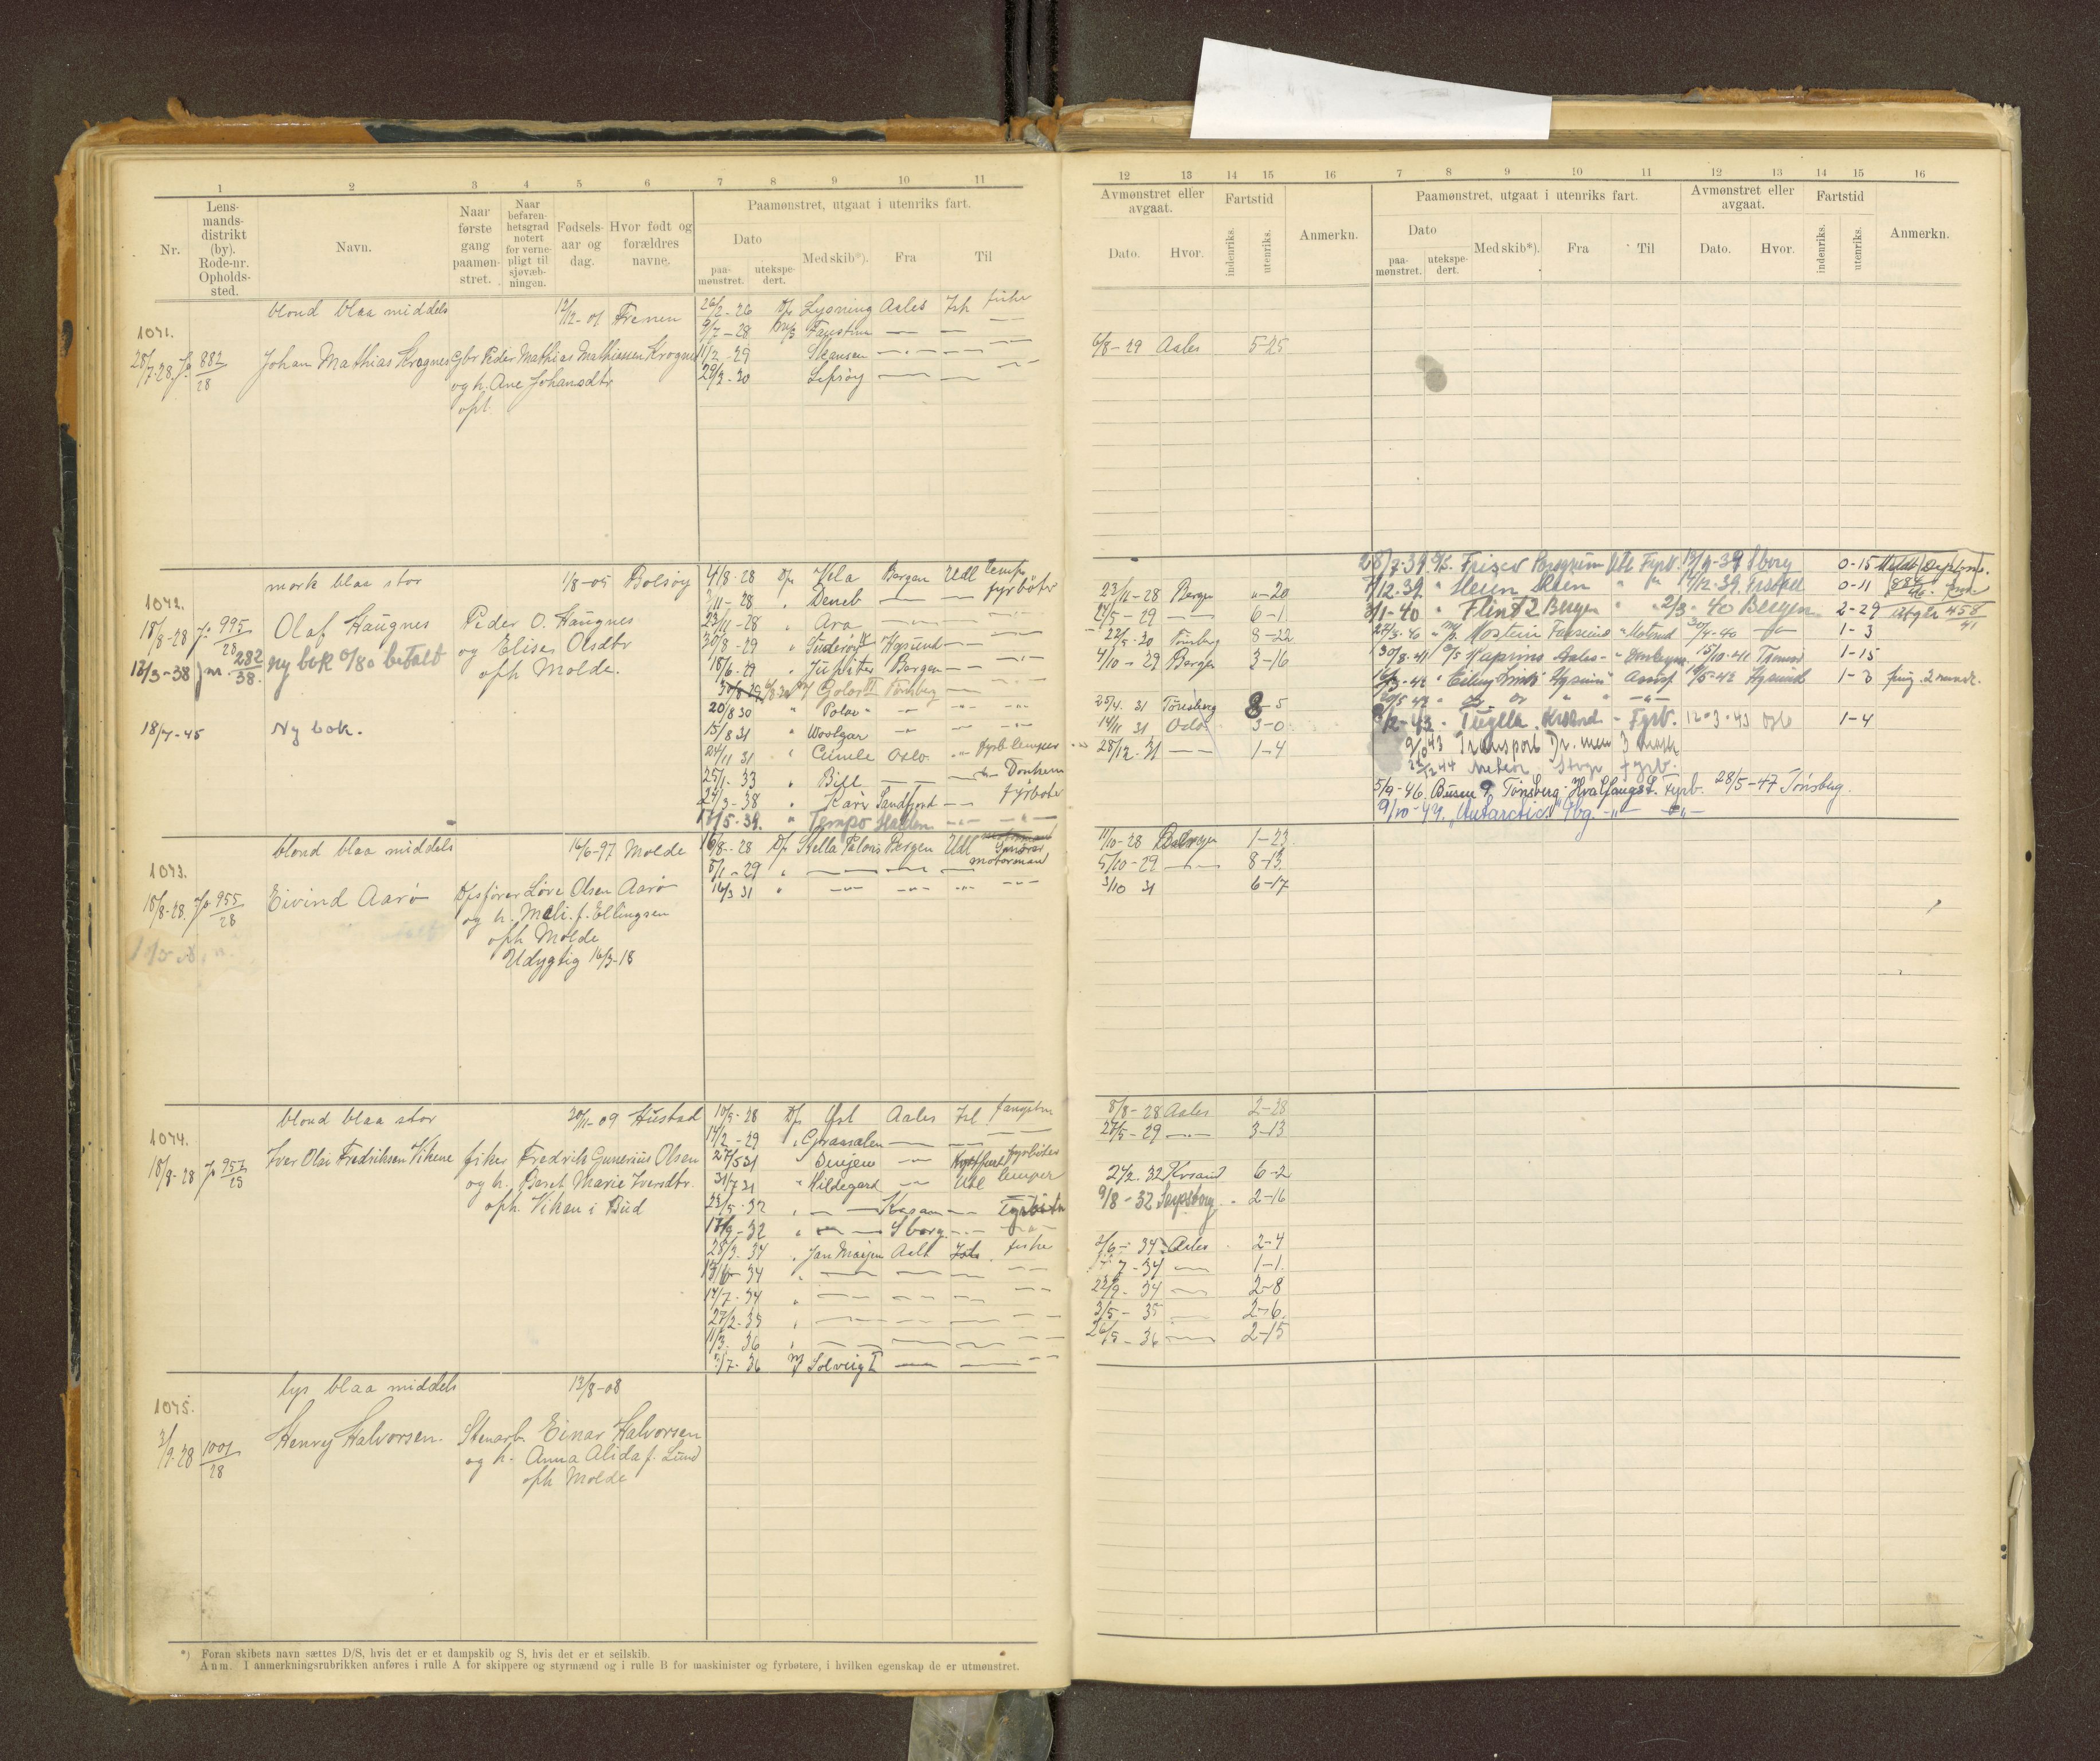 1 2 3 4 5 6 7 8 9 10 11
Nr.
Lens-
mands-
distrikt
(by).
Rode-nr.
Opholds-
sted.
Navn.
Naar
første
gang
paamøn-
stret.
Naar
befaren-
hetsgrad
notert
for verne-
pligt til
sjøvæb-
ningen.
Fødsels-
aar og
dag.
Hvor født og
forældres
navne.
Paamønstret, utgaat i utenriks fart.
Dato
paa-
mønstret.
utekspe-
dert.
Med skib*).
Fra
Til
1071.
blond blaa middels
12/12-01 Frenen
28/7-28 J. 882/28 Johan Mathias Krognes Gbr Peder Mathias Mathiassen Krognes
og h. Ane Johansdtr
oph.
26/2-26 D/s Lyoning Aales Ish fisker
9/7-28 M/S Faustina
11/2-29 Skansen
29/3-30
1072.
mørk blaa stor
1/8-05 Bolsøy
18/8-28 J. 995/28 Olaf Haugnes Peder O. Haugnes
og Elises Olsdtr
oph Molde.
18/3-38 jnr. 282/38. ny bok 0/80 betalt
18/7-45 Ny bok.
4/8-28 D/s Vela Bergen Udl lemper
11-28 " Deneb fyrbøter
23/11-28 " Ara
30/8-29 " Suderøy Høysund
18/6-29 " Jupiter Bergen
Golar II Tønsberg
20/8 30 " Polar
15/8 31 " Woolgar
24/11 31 " Cumle Oslo fyrb lemper
25/1-33 " Bill
24/3-38 " Karir Sandfjord fyrbøter
17/5-39. " Tempo Halden
1073.
blond blaa middels
16/6-97 Molde
18/8-28. J. 955/28 Eivind Aarø D/sfører Love Olsen Aarø
og h. Meli. f. Ellingsen
oph Molde
Udygtig 16/3-18
16/8-28 D/s Stella Polaris Bergen Udl Smører
5/1-29 " motormand
16/3 31 "
1074.
blond blaa stor
20/11-09 Hustad
18/8-28 J. 957/28 Iver Olai Fredriksen Vikene fisker Fredrik Gunerius Olsen
og h. Beret Marie Iversdtr.
oph. Viken i Bud
10/5-28 D/s Ysl Aales Isl fangstm
14/2-29 " Graasalen
27/5 31 " Benjen Kystfart fyrbøter
31/7 31 " Hildegard Udl lemper
23/5-32 " Fyrbøter
17/9-32 " Sborg
28/3-34 " Jan Maijen Aales Ish fisker
13/6-34 "
14/7-34 "
27/2-35 "
11/3-36 "
7-36 M/ Solveig I
1075.
lys blaa middels
13/8-08
3/9-28 1001/28 Henry Halvorsen. Stenarb. Einar Halvorsen
og h. Anna Alida f. Lund
oph Molde
*) Foran skibets navn sættes D/S, hvis det er et dampskib og S, hvis det er et seilskib.
Anm. I anmerkningsrubrikken anføres i rulle A for skippere og styrmænd og i rulle B for maskinister og fyrbøtere, i hvilken egenskap de er utmønstret.
12 13 14 15 16 7 8 9 10 11 12 13 14 15 16
Avmønstret eller
avgaat.
Dato.
Hvor.
Fartstid
indenriks.
utenriks.
Anmerkn.
Paamønstret, utgaat i utenriks fart.
Dato
paa-
mønstret.
utekspe-
dert.
Med skib*).
Fra
Til
Avmønstret eller
avgaat.
Dato.
Hvor.
Fartstid
indenriks.
utenriks.
Anmerkn.
6/8-29 Aales 5-25
23/11-28 Bergen "-20
24/5-29 6-1
22/5-30 Tønsberg 8-22
4/10-29 Bergen 3-16
25/4. 31 Tønsberg 8-5
14/11 31 Oslo 3-0
28/12. 31 1-4
28/7-39 Frisco Porsgrunn Utl Fyrb. 0-15
7/12.39. " Skien 14/12-39. 0-11
3/1-40 " Flint 2 Bergen 2/3-40 Bergen 2-29 458/41
27/3-40 30/4-40 1-3
30/8-41 Kaprino Aales 15/10-41 1-15
5-42 1-3
2-43. Fyrb. 12-3-43 Oslo 1-4
9/10 43 Transport Dr.men 3 mask
Meteor Fyrb.
5/9-46. Busen 9, Tønsberg - Hvalfangst. Fyrb. 28/5-47 Tønsberg.
9/10-47. "Antarctic" Tbg.
11/10-28 Bergen 1-23
5/10-29 8-13
3/10 31 6-17
8/8-28 Aales 2-28
27/5-29 3-13
27/2. 32 Krsand 6-2
9/8-32 Sarpsborg 2-16
2/6-34 Aales 2-4
7-34 1-1
22/9-34 2-8
3/5-35 2-6.
26/5-36 2-15